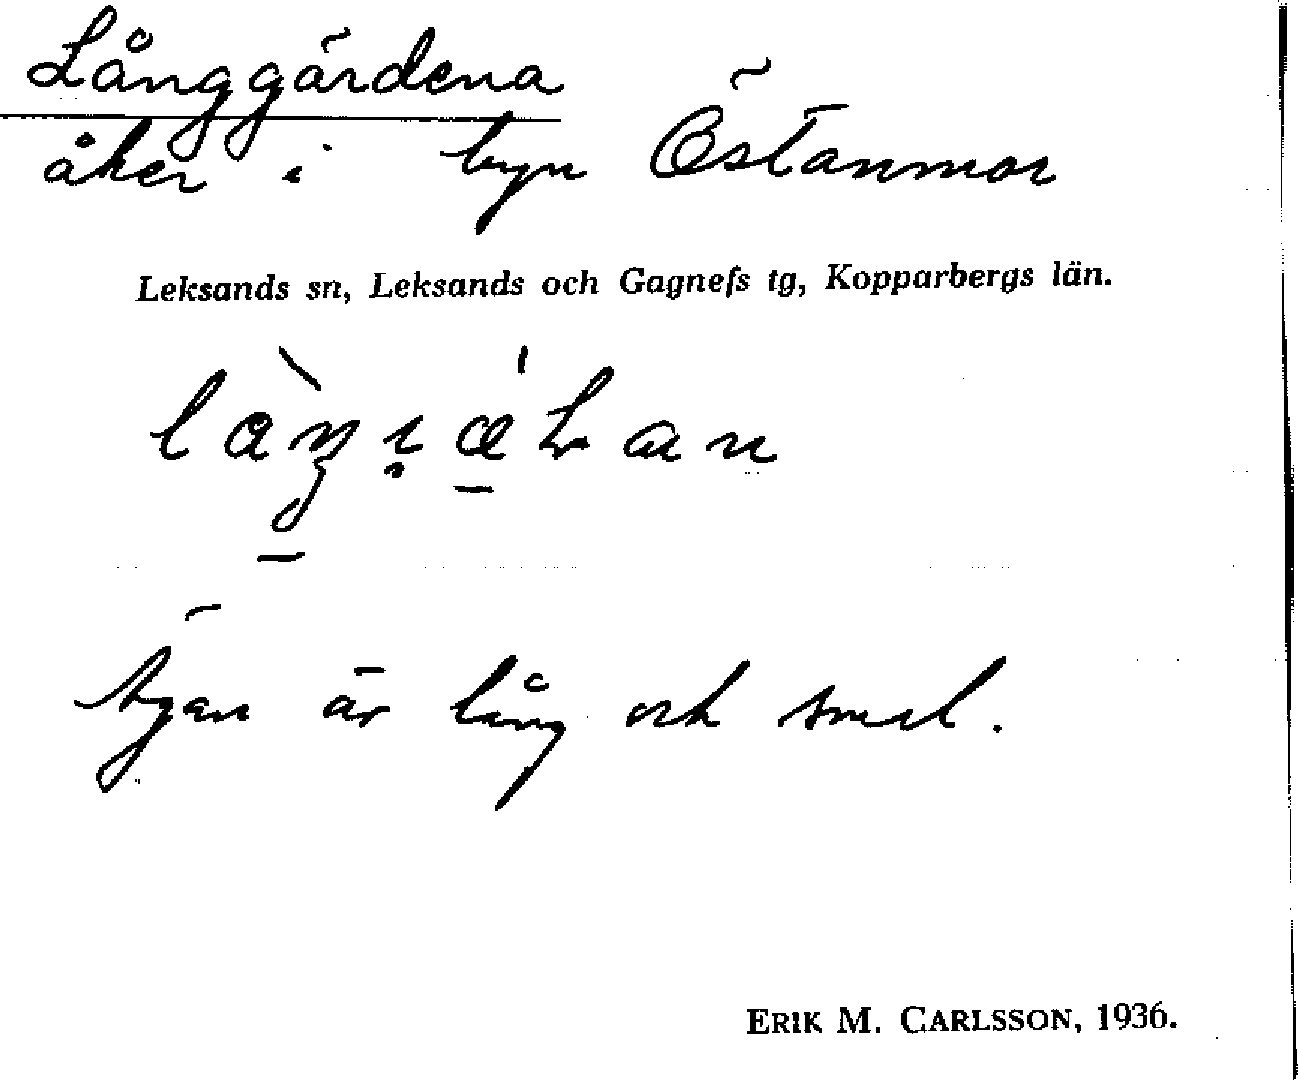 Långgärdena
åker i byn Östanmor
Leksands sn, Leksands och Gagnefs tg, Kopparbergs län.
Ägan är lång och smal.
ERIK M. CARLSSON, 1936.